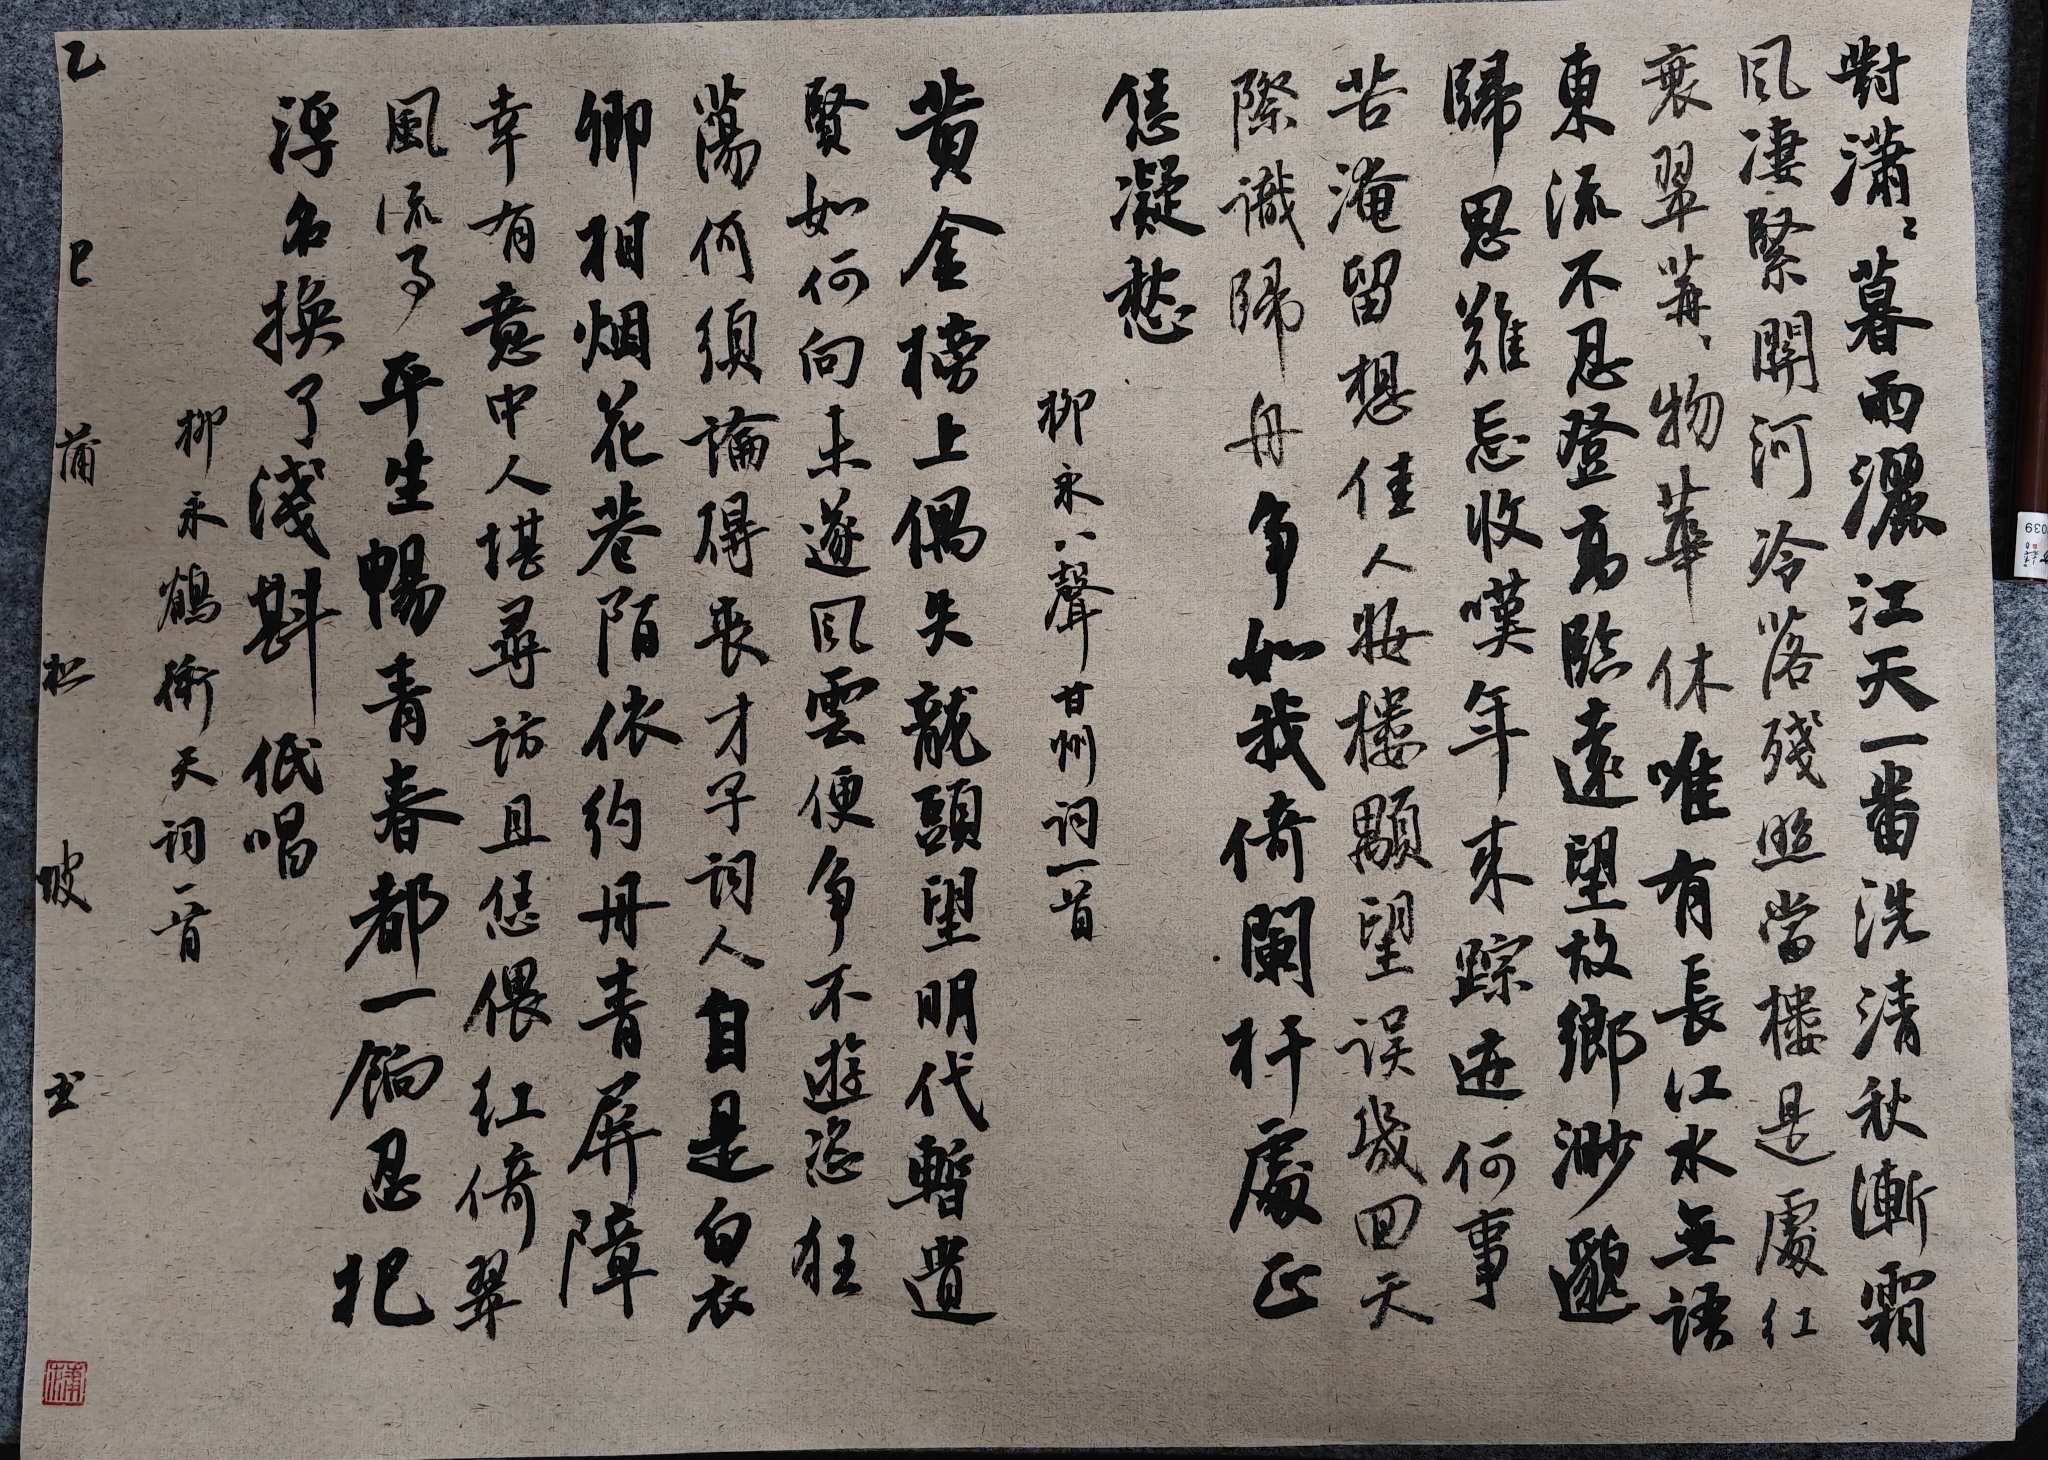 對瀟〻暮雨灑江天一番洗清秋漸霜
風凄緊關河冷落殘照當樓是處紅
衰翠苒〻物華休唯有長江水無語
東流不忍登高臨遠望故鄉渺邈
歸思難忘收嘆年來踪迹何事
苦淹留想佳人妝樓顒望誤幾回天
際識歸舟争如我倚闌杆處正
恁凝愁
柳永八聲甘州词一首
黄金榜上偶失龍頭望明代暫遺
賢如何向未遂風雲便争不遊恣狂
蕩何須論得丧才子词人自是白衣
卿相烟花巷陌依约丹青屏障
幸有意中人堪尋訪且恁偎红倚翠
風流事平生暢青春都一餉忍把
浮名換了淺斟低唱
柳永鶴衝天词一首
乙巳蒲松坡书
蒲